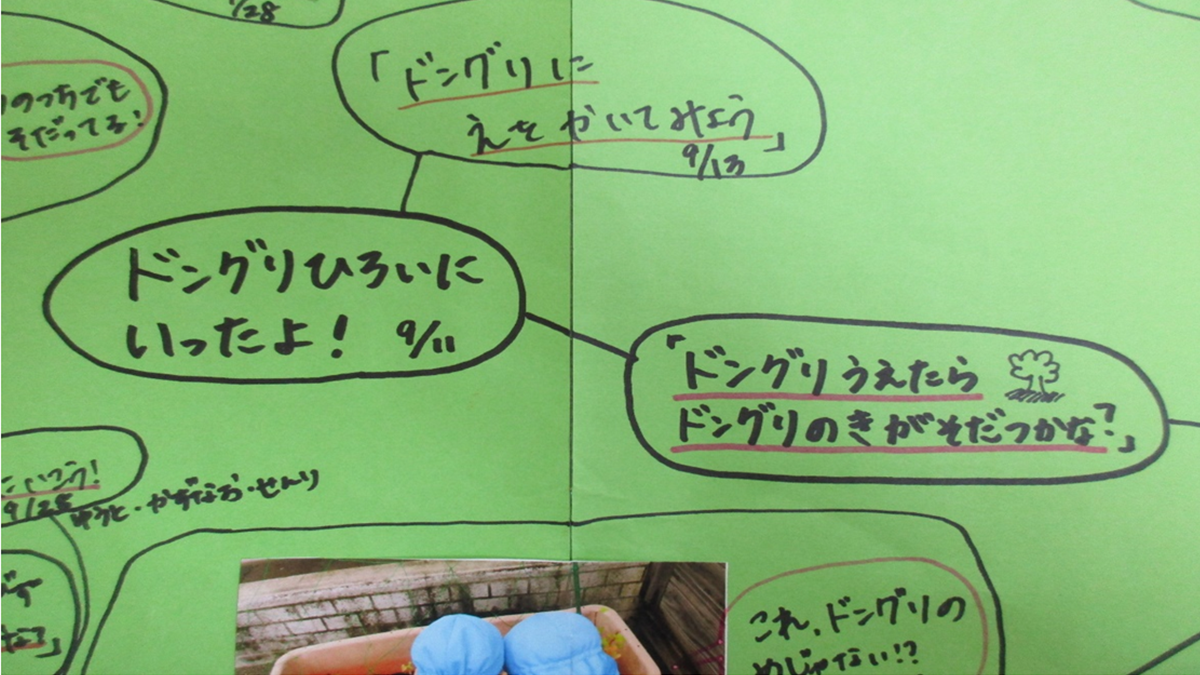 /28
「ドングリに
えを かいてみよう」
9/13
のっちでも
そだってる!
ドングリひろいに
いったよ! 9/11
「ドングリうえたら
ドングリのきがそだつかな?」
9/28
ゆうと・かずなお・せんり
これ、ドングリの
めじゃない!?